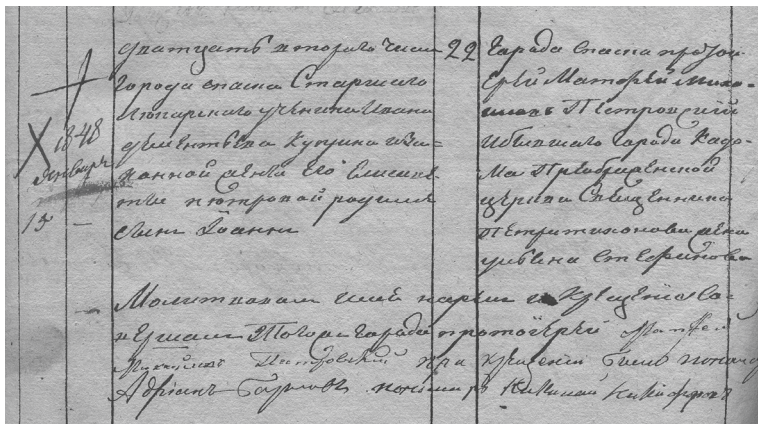 1848
Январь
15
дватцать втораго числа
города спаска Старшаго
Лекарскаго ученика Ивана
дементьева Куприна и За-
конной жены его Елисаве-
ты петровой родился
сынъ Иоаннъ
22
Города спаска протои-
ерей Матфей Миха-
иловъ Петровский
и бывшаго города Кадо-
ма Преображенской
церкви Священника
жена
Стефанова
Молитвовалъ имя нарекъ и Крещение Со-
вершалъ Тогоже города протоиерей Матфей
Михайловъ Петровский при крещении были
Адрианъ пономарь Никифоровъ